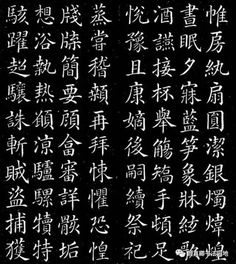 帷房紈扇圓潔銀燭煒煌
晝眠夕寐藍筍象牀絃歌
酒讌接杯舉觴矯手頓足
悅豫且康嫡後嗣續祭祀
蒸嘗稽顙再拜悚懼恐惶
牋牒簡要顧答審詳骸垢
想浴執熱願涼驢騾犢特
駭躍超驤誅斬賊盜捕獲